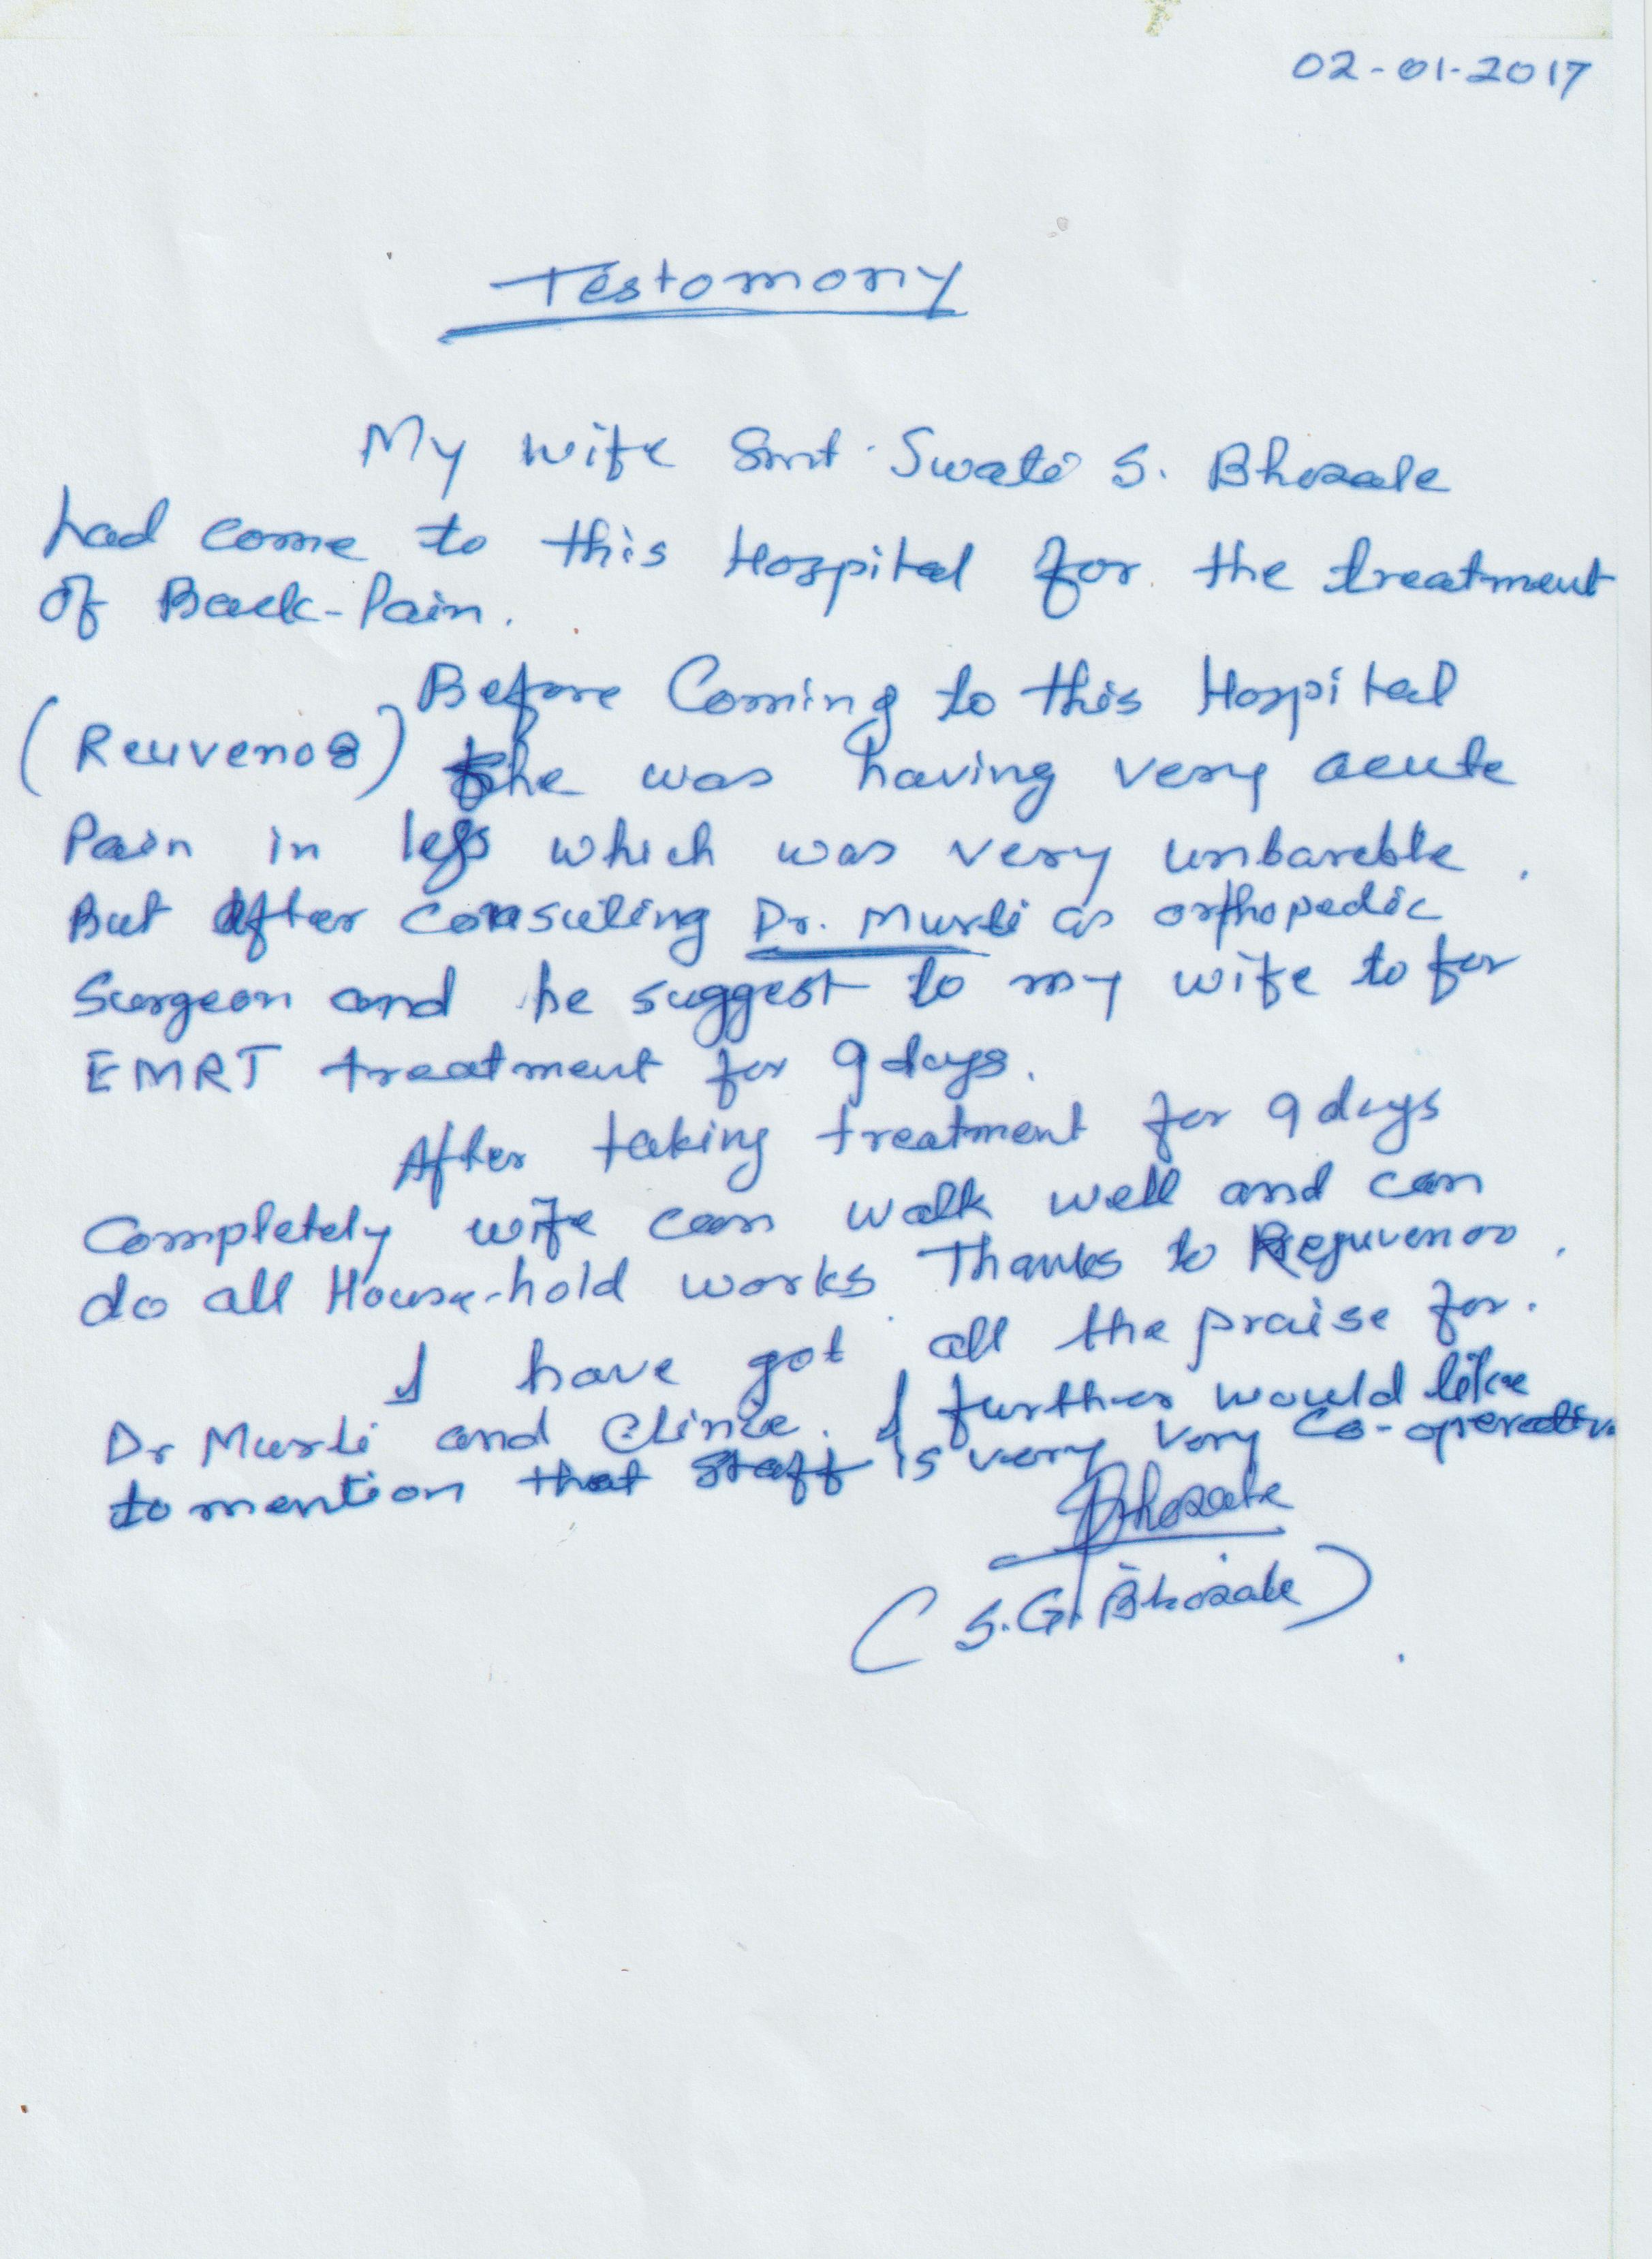 02-01-2017
Testomony
My wife Smt. Swati S. Bhosale
had come to this Hospital for the treatment
of Back-Pain.
Before Coming to this Hospital
(Reuvenoo) She was having very acute
Pain in legs which was very unbareble.
But After consulting Dr. Murli as orthopedic
Surgeon and he suggest to my wife to for
EMRT treatment for 9 days.
After taking treatment for 9 days
Completely wife can walk well and can
do all House-hold works. Thanks to Rejuvenoo.
I have got all the praise for.
Dr Murli and Clinic. I further would like
to mention that Staff is very very Co-operative
Bhosale
(S.G. Bhosale)